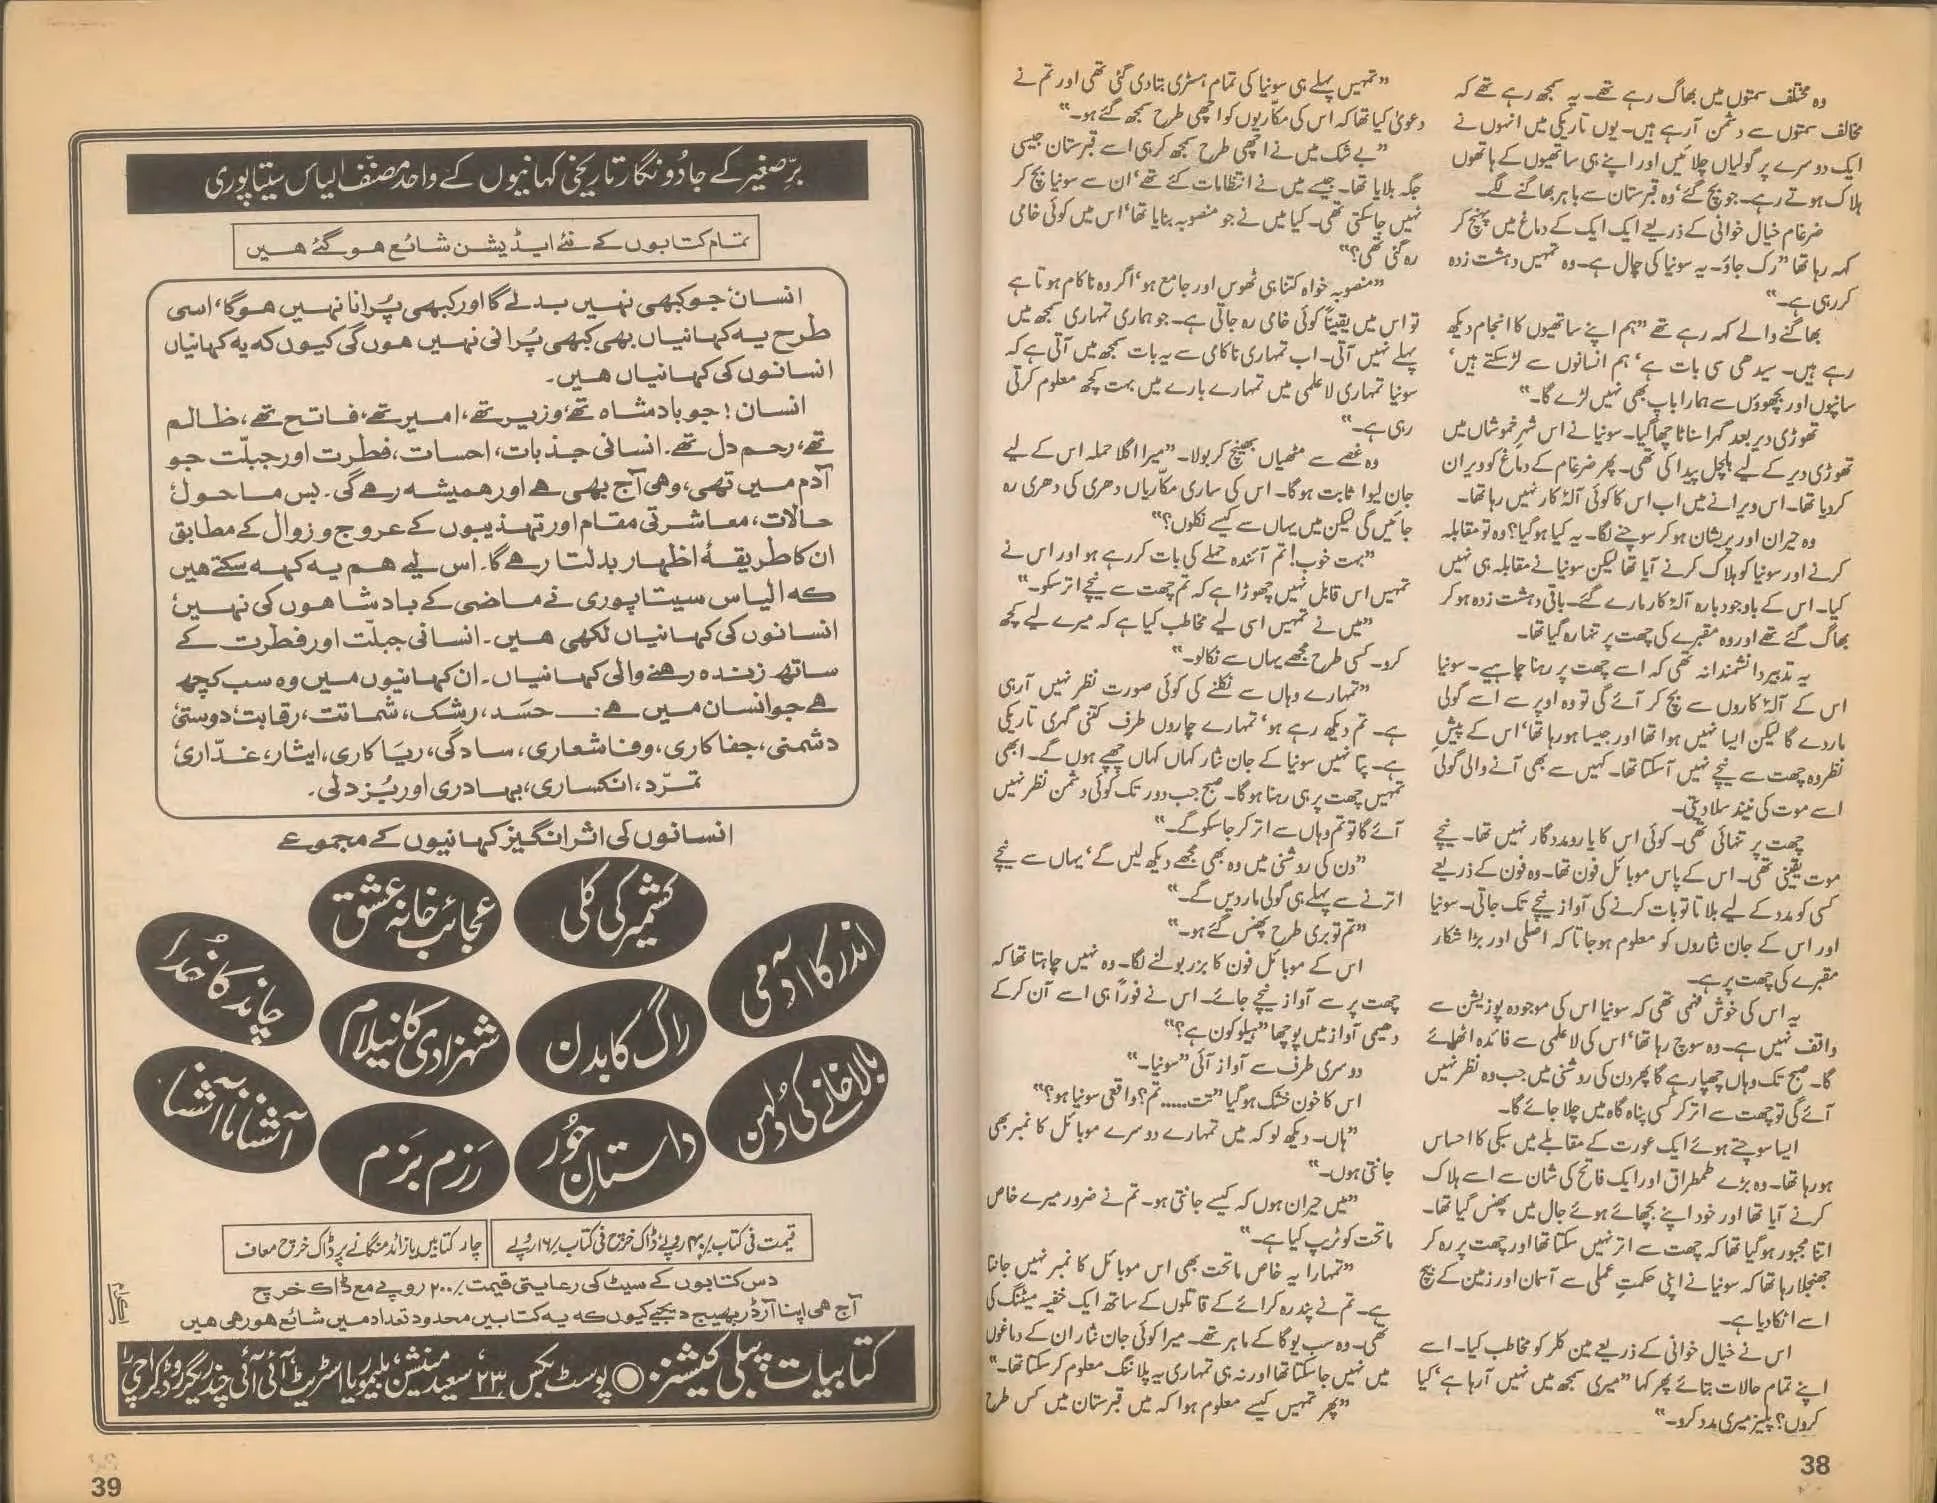 وہ مختلف سمتوں میں بھاگ رہے تھے۔ یہ سمجھ رہے تھے کہ
مخالف سمتوں سے دشمن آرہے ہیں۔ یوں تاریکی میں انہوں نے
ایک دوسرے پر گولیاں چلائیں اور اپنے ہی ساتھیوں کے ہاتھوں
ہلاک ہوتے رہے۔ جو بچ گئے‘ وہ قبرستان سے باہر بھاگنے لگے۔
ضرغام خیال خوانی کے ذریعے ایک ایک کے دماغ میں پہنچ کر
کہہ رہا تھا ”رک جاؤ۔ یہ سونیا کی چال ہے۔ وہ تمہیں دہشت زدہ
کر رہی ہے۔“
بھاگنے والے کہہ رہے تھے ”ہم اپنے ساتھیوں کا انجام دیکھ
رہے ہیں۔ سیدھی سی بات ہے‘ ہم انسانوں سے لڑ سکتے ہیں‘
سانپوں اور بچھوؤں سے ہمارا باپ بھی نہیں لڑے گا۔“
تھوڑی دیر بعد گہرا سناٹا چھا گیا۔ سونیا نے اس شہرِ خموشاں میں
تھوڑی دیر کے لیے ہلچل پیدا کی تھی۔ پھر ضرغام کے دماغ کو ویران
کر دیا تھا۔ اس ویرانے میں اب اس کا کوئی آلۂ کار نہیں رہا تھا۔
وہ حیران اور پریشان ہو کر سوچنے لگا۔ یہ کیا ہو گیا؟ وہ تو مقابلہ
کرنے اور سونیا کو ہلاک کرنے آیا تھا لیکن سونیا نے مقابلہ ہی نہیں
کیا۔ اس کے باوجود بارہ آلۂ کار مارے گئے۔ باقی دہشت زدہ ہو کر
بھاگ گئے تھے اور وہ مقبرے کی چھت پر تنہا رہ گیا تھا۔
یہ تدبیر دانشمندانہ تھی کہ اسے چھت پر رہنا چاہیے۔ سونیا
اس کے آلۂ کاروں سے بچ کر آئے گی تو وہ اوپر سے اسے گولی
مار دے گا لیکن ایسا نہیں ہوا تھا اور جیسا ہو رہا تھا‘ اس کے پیشِ
نظر وہ چھت سے نیچے نہیں آ سکتا تھا۔ کہیں سے بھی آنے والی گولی
اسے موت کی نیند سلا دیتی۔
چھت پر تنہائی تھی۔ کوئی اس کا یارو مددگار نہیں تھا۔ نیچے
موت یقینی تھی۔ اس کے پاس موبائل فون تھا۔ وہ فون کے ذریعے
کسی کو مدد کے لیے بلاتا تو بات کرنے کی آواز نیچے تک جاتی۔ سونیا
اور اس کے جان نثاروں کو معلوم ہو جاتا کہ اصلی اور بڑا شکار
مقبرے کی چھت پر ہے۔
یہ اس کی خوش فہمی تھی کہ سونیا اس کی موجودہ پوزیشن سے
واقف نہیں ہے۔ وہ سوچ رہا تھا‘ اس کی لاعلمی سے فائدہ اٹھائے
گا۔ صبح تک وہاں چھپا رہے گا پھر دن کی روشنی میں جب وہ نظر نہیں
آئے گی تو چھت سے اتر کر کسی پناہ گاہ میں چلا جائے گا۔
ایسا سوچتے ہوئے ایک عورت کے مقابلے میں سبکی کا احساس
ہو رہا تھا۔ وہ بڑے طمطراق اور ایک فاتح کی شان سے اسے ہلاک
کرنے آیا تھا اور خود اپنے بچھائے ہوئے جال میں پھنس گیا تھا۔
اتنا مجبور ہو گیا تھا کہ چھت سے اتر نہیں سکتا تھا اور چھت پر رہ کر
جھنجلا رہا تھا کہ سونیا نے اپنی حکمتِ عملی سے آسمان اور زمین کے بیچ
اسے لٹکا دیا ہے۔
اس نے خیال خوانی کے ذریعے مین کلر کو مخاطب کیا۔ اسے
اپنے تمام حالات بتائے پھر کہا ”میری سمجھ میں نہیں آرہا ہے‘ کیا
کروں؟ پلیز میری مدد کرو۔“
”تمہیں پہلے ہی سونیا کی تمام ہسٹری بتا دی گئی تھی اور تم نے
دعویٰ کیا تھا کہ اس کی مکاریوں کو اچھی طرح سمجھ گئے ہو۔“
”بے شک میں نے اچھی طرح سمجھ کر ہی اسے قبرستان جیسی
جگہ بلایا تھا۔ جیسے میں نے انتظامات کئے تھے‘ ان سے سونیا بچ کر
نہیں جا سکتی تھی۔ کیا میں نے جو منصوبہ بنایا تھا‘ اس میں کوئی خامی
رہ گئی تھی؟“
”منصوبہ خواہ کتنا ہی ٹھوس اور جامع ہو‘ اگر وہ ناکام ہوتا ہے
تو اس میں یقیناً کوئی خامی رہ جاتی ہے۔ جو ہماری تمہاری سمجھ میں
پہلے نہیں آتی۔ اب تمہاری ناکامی سے یہ بات سمجھ میں آتی ہے کہ
سونیا تمہاری لاعلمی میں تمہارے بارے میں بہت کچھ معلوم کرتی
رہی ہے۔“
وہ غصے سے مٹھیاں بھینچ کر بولا۔ ”میرا اگلا حملہ اس کے لیے
جان لیوا ثابت ہوگا۔ اس کی ساری مکاریاں دھری کی دھری رہ
جائیں گی لیکن میں یہاں سے کیسے نکلوں؟“
”بہت خوب! تم آئندہ حملے کی بات کر رہے ہو اور اس نے
تمہیں اس قابل نہیں چھوڑا ہے کہ تم چھت سے نیچے اتر سکو۔“
”میں نے تمہیں اسی لیے مخاطب کیا ہے کہ میرے لیے کچھ
کرو۔ کسی طرح مجھے یہاں سے نکالو۔“
”تمہارے وہاں سے نکلنے کی کوئی صورت نظر نہیں آرہی
ہے۔ تم دیکھ رہے ہو‘ تمہارے چاروں طرف کتنی گہری تاریکی
ہے۔ پتا نہیں سونیا کے جان نثار کہاں کہاں چھپے ہوں گے۔ ابھی
تمہیں چھت پر ہی رہنا ہوگا۔ صبح جب دور تک کوئی دشمن نظر نہیں
آئے گا تو تم وہاں سے اتر کر جا سکو گے۔“
”دن کی روشنی میں وہ بھی مجھے دیکھ لیں گے‘ یہاں سے نیچے
اترنے سے پہلے ہی گولی مار دیں گے۔“
”تم تو بری طرح پھنس گئے ہو۔“
اس کے موبائل فون کا بزر بولنے لگا۔ وہ نہیں چاہتا تھا کہ
چھت پر سے آواز نیچے جائے۔ اس نے فوراً ہی اسے آن کر کے
دھیمی آواز میں پوچھا ”ہیلو کون ہے؟“
دوسری طرف سے آواز آئی ”سونیا۔“
اس کا خون خشک ہو گیا ”تت.....تم؟ واقعی سونیا ہو؟“
”ہاں۔ دیکھ لو کہ میں تمہارے دوسرے موبائل کا نمبر بھی
جانتی ہوں۔“
”میں حیران ہوں کہ کیسے جانتی ہو۔ تم نے ضرور میرے خاص
ماتحت کو ٹریپ کیا ہے۔“
”تمہارا یہ خاص ماتحت بھی اس موبائل کا نمبر نہیں جانتا
ہے۔ تم نے پندرہ کرائے کے قاتلوں کے ساتھ ایک خفیہ میٹنگ کی
تھی۔ وہ سب یوگا کے ماہر تھے۔ میرا کوئی جان نثار ان کے دماغوں
میں نہیں جا سکتا تھا اور نہ ہی تمہاری یہ پلاننگ معلوم کر سکتا تھا۔“
”پھر تمہیں کیسے معلوم ہوا کہ میں قبرستان میں کس طرح
38
برِّصغیر کے جادُو نگار تاریخی کہانیوں کے واحد مصنّف الیاس سیتاپوری
تمام کتابوں کے نئے ایڈیشن شائع ہو گئے ہیں
انسان‘ جو کبھی نہیں بدلے گا اور کبھی پُرانا نہیں ہوگا‘ اسی
طرح یہ کہانیاں بھی کبھی پُرانی نہیں ہوں گی کیوں کہ یہ کہانیاں
انسانوں کی کہانیاں ہیں۔
انسان! جو بادشاہ تھے، وزیر تھے، امیر تھے، فاتح تھے، ظالم
تھے، رحم دل تھے۔ انسانی جذبات، احسات، فطرت اور جبلّت جو
آدم میں تھی، وہی آج بھی ہے اور ہمیشہ رہے گی۔ بس ماحول‘
حالات، معاشرتی مقام اور تہذیبوں کے عروج و زوال کے مطابق
ان کا طریقۂ اظہار بدلتا رہے گا۔ اس لیے ہم یہ کہہ سکتے ہیں
کہ الیاس سیتاپوری نے ماضی کے بادشاہوں کی نہیں‘
انسانوں کی کہانیاں لکھی ہیں۔ انسانی جبلّت اور فطرت کے
ساتھ زندہ رہنے والی کہانیاں۔ ان کہانیوں میں وہ سب کچھ
ہے جو انسان میں ہے۔۔۔ حسَد، رشک، شماتت، رقابت، دوستی‘
دشمنی، جفاکاری، وفاشعاری، سادگی، ریاکاری، ایثار، غدّاری‘
تمرّد، انکساری، بہادری اور بُزدلی۔
انسانوں کی اثر انگیز کہانیوں کے مجموعے
کشمیر کی کلی
عجائب خانہ عشق
اندر کا آدمی
چاند کا خُدا
راگ کا بدن
شہزادی کا نیلام
بالا خانے کی دُلہن
آشنا ناآشنا
داستانِ حُور
رَزم بَزم
قیمت فی کتاب /۴۰ روپے ڈاک خرچ فی کتاب /۱۶ روپے
چار کتابیں یا زائد منگانے پر ڈاک خرچ معاف
دس کتابوں کے سیٹ کی رعایتی قیمت /۲۰۰ روپے مع ڈاک خرچ
آج ہی اپنا آرڈر بھیج دیجیے کیوں کہ یہ کتابیں محدود تعداد میں شائع ہو رہی ہیں
کتابیات پبلی کیشنز ● پوسٹ بکس ۲۳، سعید منیشن، بلیموریا اسٹریٹ آئی آئی چندریگر روڈ کراچی ۱
39